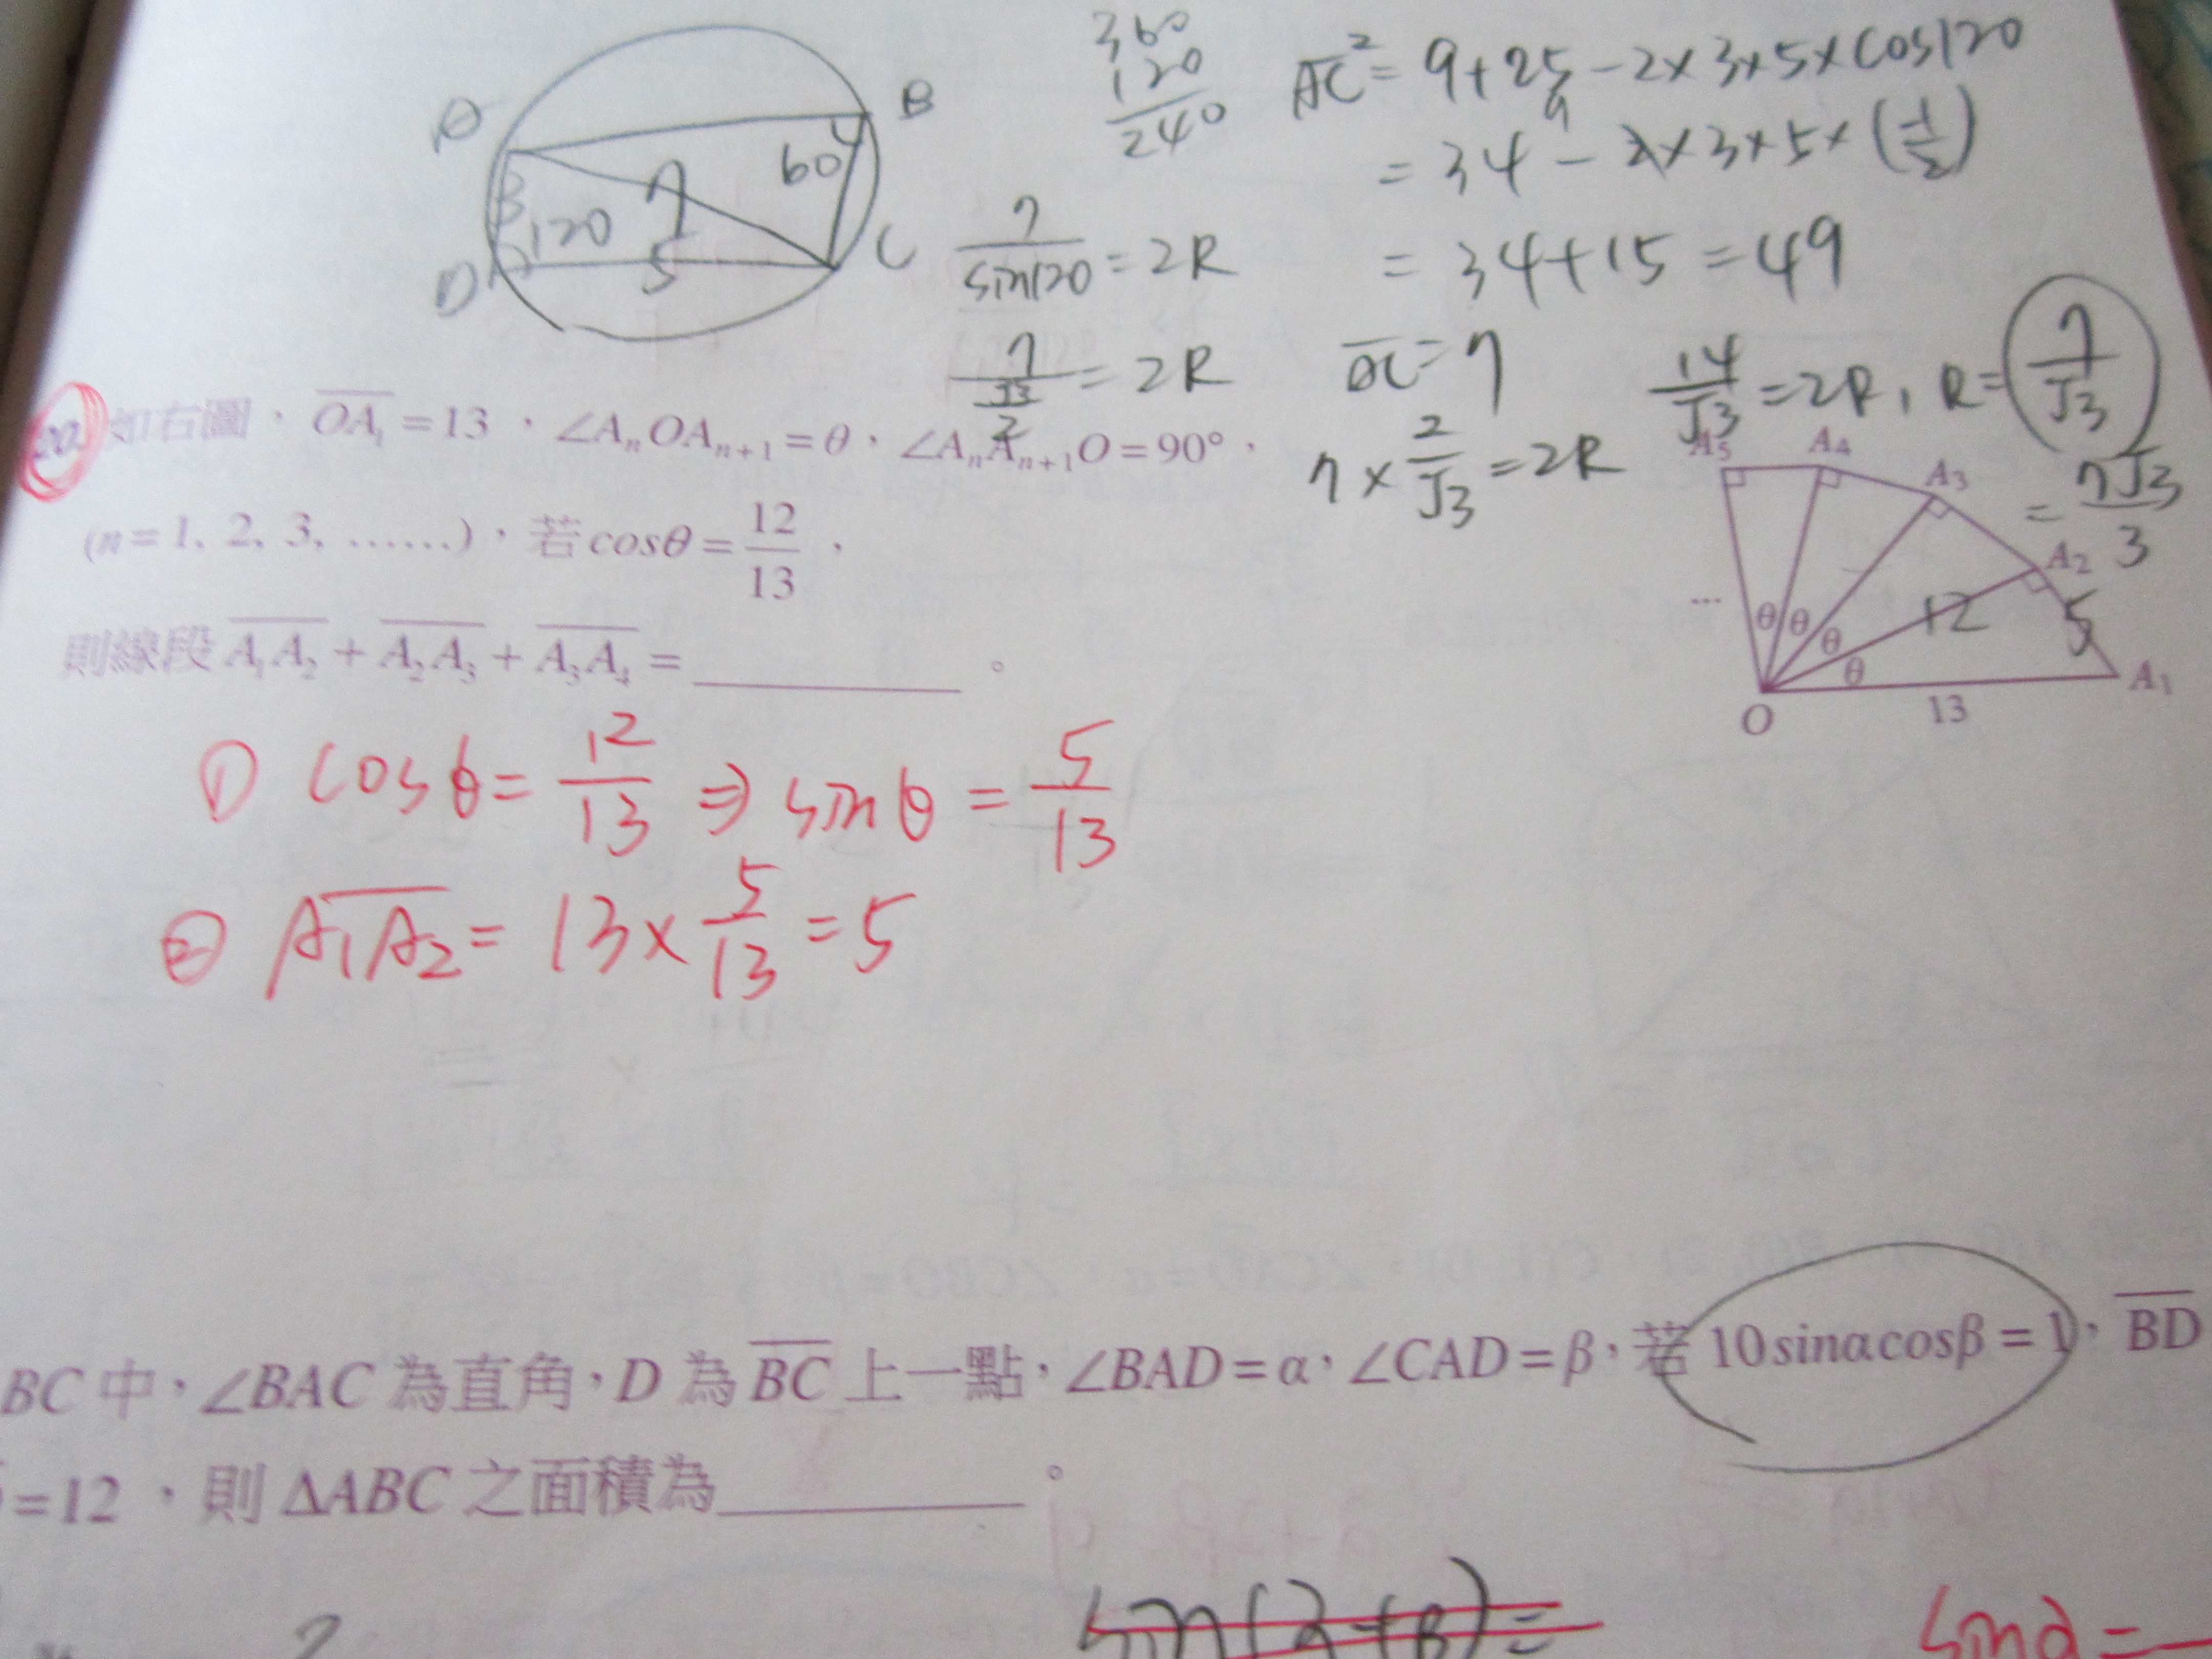 A
B
60
3
7
120
5
D
C
360
120
240
AC² = 9+25-2×3×5×cos120
= 34 - 2×3×5×(-1/2)
7/sin120 = 2R
= 34+15 = 49
7/(√3/2) = 2R
AC = 7
14/√3 = 2R, R = 7/√3
7 × 2/√3 = 2R
= 7√3/3
20. 如右圖，OA₁=13，∠AₙOAₙ₊₁=θ，∠AₙAₙ₊₁O=90°，
(n=1, 2, 3, ……)，若cosθ=12/13，
則線段 A₁A₂ + A₂A₃ + A₃A₄ = ________。
A₅
A₄
A₃
A₂
...
θ
θ
θ
θ
12
5
A₁
O
13
① cosθ = 12/13 ⇒ sinθ = 5/13
② A₁A₂ = 13 × 5/13 = 5
BC 中，∠BAC 為直角，D 為 BC 上一點，∠BAD=α，∠CAD=β，若 10sinαcosβ=1，BD
=12，則 ΔABC 之面積為________。
sin(α+β)=
sinα=